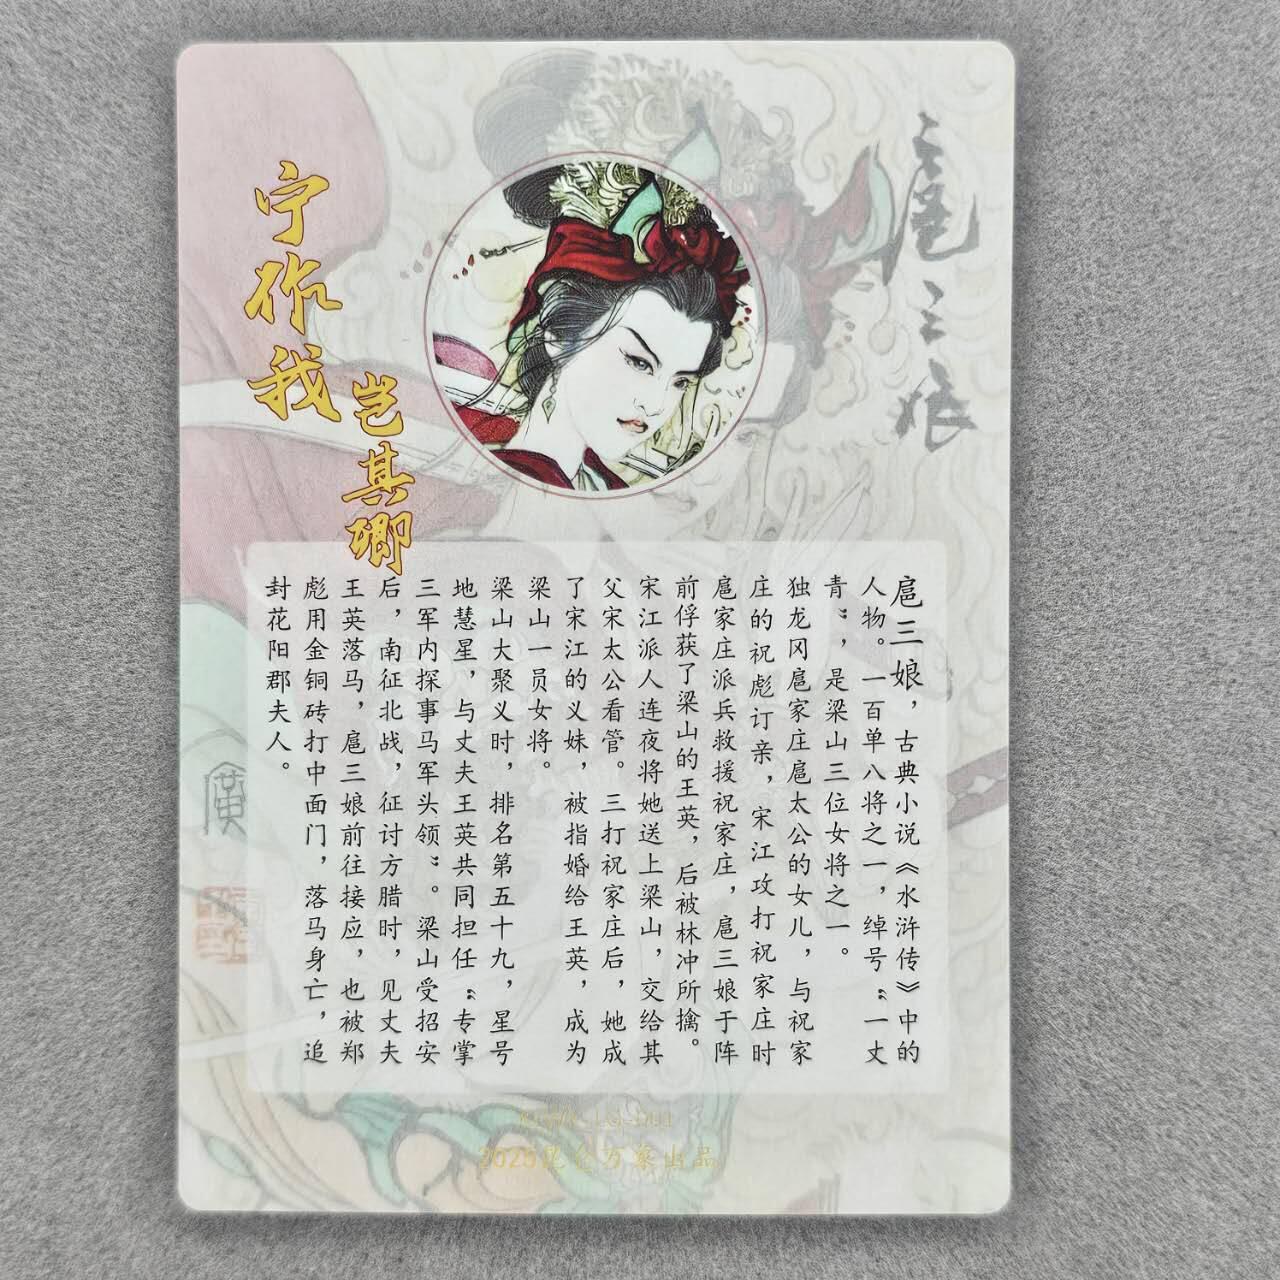 扈三娘
宁作我
岂其卿
扈三娘，古典小说《水浒传》中的
人物。一百单八将之一，绰号“一丈
青”，是梁山三位女将之一。
独龙冈扈家庄扈太公的女儿，与祝家
庄的祝彪订亲，宋江攻打祝家庄时
扈家庄派兵救援祝家庄，扈三娘于阵
前俘获了梁山的王英，后被林冲所擒。
宋江派人连夜将她送上梁山，交给其
父宋太公看管。三打祝家庄后，她成
了宋江的义妹，被指婚给王英，成为
梁山一员女将。
梁山大聚义时，排名第五十九，星号
地慧星，与丈夫王英共同担任“专掌
三军内探事马军头领”。梁山受招安
后，南征北战，征讨方腊时，见丈夫
王英落马，扈三娘前往接应，也被郑
彪用金铜砖打中面门，落马身亡，追
封花阳郡夫人。
廣
昆仑万象出品